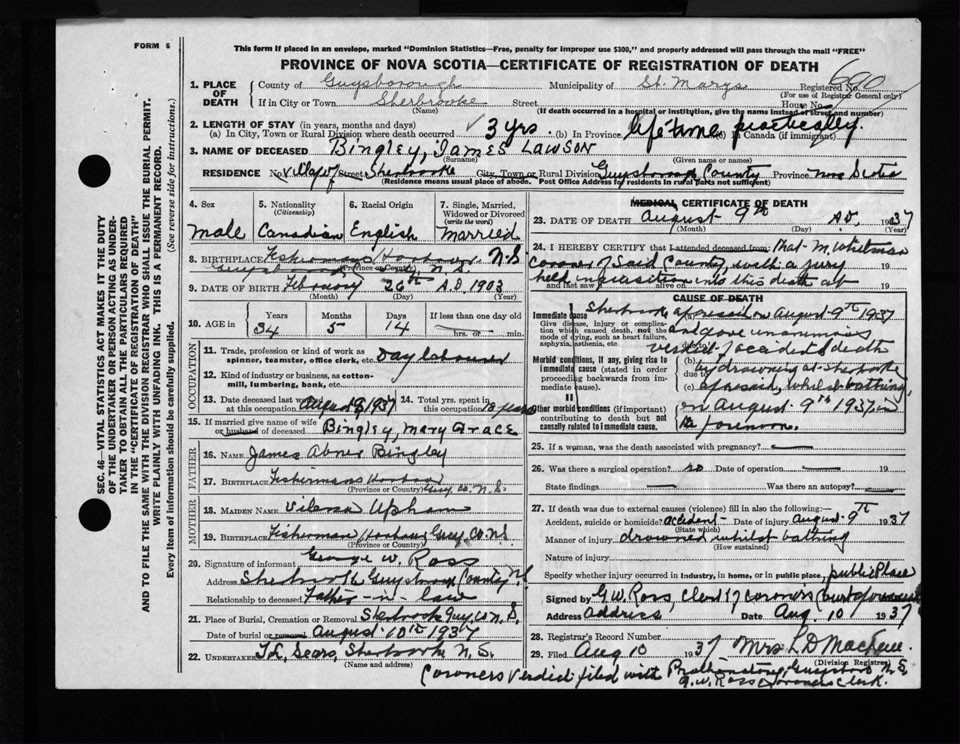 FORM 6
This form if placed in an envelope, marked "Dominion Statistics—Free, penalty for improper use $300," and properly addressed will pass through the mail "FREE"
PROVINCE OF NOVA SCOTIA—CERTIFICATE OF REGISTRATION OF DEATH
SEC. 46—VITAL STATISTICS ACT MAKES IT THE DUTY
OF THE UNDERTAKER OR PERSON ACTING AS UNDER-
TAKER TO OBTAIN ALL THE PARTICULARS REQUIRED
IN THE "CERTIFICATE OF REGISTRATION OF DEATH"
AND TO FILE THE SAME WITH THE DIVISION REGISTRAR WHO SHALL ISSUE THE BURIAL PERMIT.
WRITE PLAINLY WITH UNFADING INK. THIS IS A PERMANENT RECORD.
Every item of information should be carefully supplied. (See reverse side for instructions.)
1. PLACE OF DEATH County of Guysborough Municipality of St. Marys Registered No. 600
(For use of Registrar General only)
If in City or Town Sherbrooke Street House No.
(Name) (If death occurred in a hospital or institution, give the name instead of street and number)
2. LENGTH OF STAY (in years, months and days)
(a) In City, Town or Rural Division where death occurred 3 yrs. (b) In Province life time practically. (c) In Canada (if immigrant)
3. NAME OF DECEASED Bingley, James Lawson
(Surname) (Given name or names)
RESIDENCE No. Village of Street Sherbrooke City, Town or Rural Division Guysborough County Province Nova Scotia
(Residence means usual place of abode. Post Office Address for residents in rural parts not sufficient)
4. Sex Male
5. Nationality (Citizenship) Canadian
6. Racial Origin English
7. Single, Married, Widowed or Divorced (write the word) Married
8. BIRTHPLACE Fishermans Harbour N.S.
Guysborough N.S.
(Province or Country)
9. DATE OF BIRTH February 26th A.D. 1903
(Month) (Day) (Year)
10. AGE in Years 34 Months 5 Days 14 If less than one day old hrs. or min.
OCCUPATION
11. Trade, profession or kind of work as spinner, teamster, office clerk, etc. Day labourer
12. Kind of industry or business, as cotton-mill, lumbering, bank, etc.
13. Date deceased last worked at this occupation August 1937 14. Total yrs. spent in this occupation 18 years
15. If married give name of wife or husband of deceased Bingley, Mary Grace
FATHER
16. NAME James Abner Bingley
17. BIRTHPLACE Fishermans Harbour Guy. Co. N.S.
(Province or Country)
MOTHER
18. MAIDEN NAME Upham
19. BIRTHPLACE Fisherman Harbour Guy. Co. N.S.
(Province or Country)
20. Signature of informant George W. Ross
Address Sherbrooke Guysborough County, N.S.
Relationship to deceased Father-in-law
21. Place of Burial, Cremation or Removal Sherbrook Guy. Co. N.S.
Date of burial or removal August 10th 1937
22. UNDERTAKER Sears, Sherbrooke N.S.
(Name and address)
MEDICAL CERTIFICATE OF DEATH
23. DATE OF DEATH August 9th A.D. 1937
(Month) (Day) (Year)
24. I HEREBY CERTIFY that I attended deceased from: That M. Whitman
coroner of said County, with a jury 19
and last saw alive on held inquisition into this death at 19
CAUSE OF DEATH
Immediate cause Sherbrooke aforesaid on August 9th 1937
Give disease, injury or complication which caused death, not the mode of dying, such as heart failure, asphyxia, asthenia, etc. and gave unanimous
verdict of accidental death
Morbid conditions, if any, giving rise to immediate cause (stated in order proceeding backwards from immediate cause). (b) due to by drowning at Sherbrooke
(c) aforesaid, whilst bathing
II
Other morbid conditions (if important) contributing to death but not causally related to immediate cause. on August 9th 1937 in
the forenoon.
25. If a woman, was the death associated with pregnancy?
26. Was there a surgical operation? no Date of operation 19
State findings Was there an autopsy?
27. If death was due to external causes (violence) fill in also the following:—
Accident, suicide or homicide? accident Date of injury August 9th 1937
(State which)
Manner of injury drowned whilst bathing
(How sustained)
Nature of injury
Specify whether injury occurred in industry, in home, or in public place, public Place
Signed by G.W. Ross, Clerk of coroners Court aforesaid
Address address Date Aug. 10 1937
28. Registrar's Record Number
29. Filed Aug 10 1937 Mrs L D
(Division Registrar)
Coroners verdict filed with Guysboro N.S.
G.W. Ross Coroners Clerk.